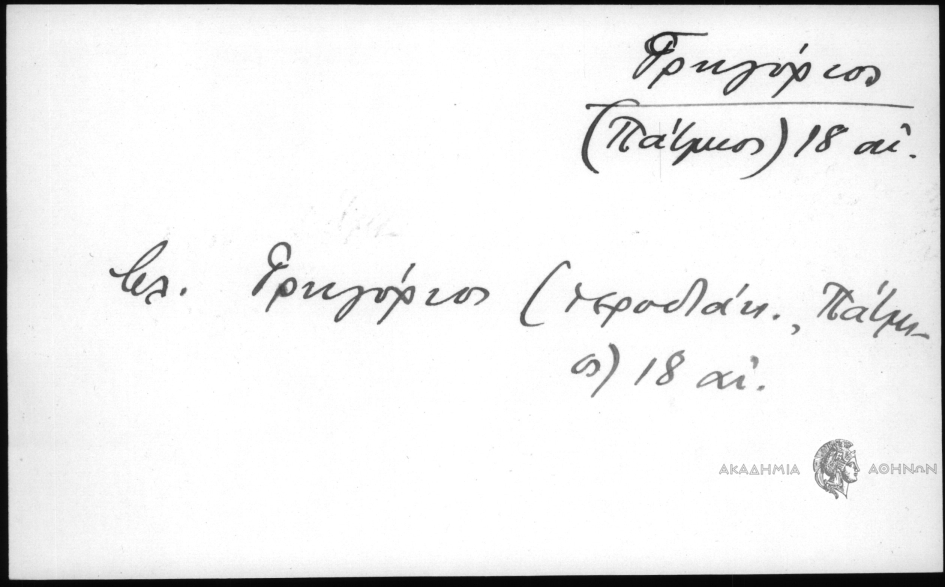 Γρηγόριος
(Πάτμιος) 18 αἰ.
βλ. Γρηγόριος (ἱεροδιάκ., Πάτμι-
ος) 18 αἰ.
ΑΚΑΔΗΜΙΑ ΑΘΗΝΩΝ